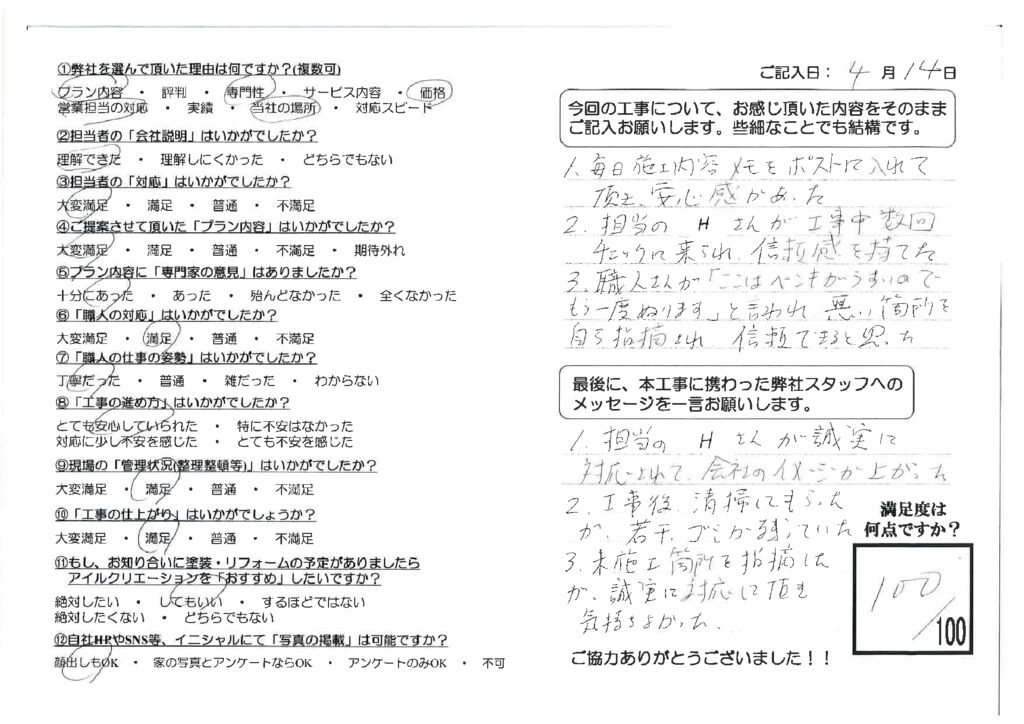 ①弊社を選んで頂いた理由は何ですか？(複数可)
プラン内容 ・ 評判 ・ 専門性 ・ サービス内容 ・ 価格
営業担当の対応 ・ 実績 ・ 当社の場所 ・ 対応スピード
②担当者の「会社説明」はいかがでしたか？
理解できた ・ 理解しにくかった ・ どちらでもない
③担当者の「対応」はいかがでしたか？
大変満足 ・ 満足 ・ 普通 ・ 不満足
④ご提案させて頂いた「プラン内容」はいかがでしたか？
大変満足 ・ 満足 ・ 普通 ・ 不満足 ・ 期待外れ
⑤プラン内容に「専門家の意見」はありましたか？
十分にあった ・ あった ・ 殆んどなかった ・ 全くなかった
⑥「職人の対応」はいかがでしたか？
大変満足 ・ 満足 ・ 普通 ・ 不満足
⑦「職人の仕事の姿勢」はいかがでしたか？
丁寧だった ・ 普通 ・ 雑だった ・ わからない
⑧「工事の進め方」はいかがでしたか？
とても安心していられた ・ 特に不安はなかった
対応に少し不安を感じた ・ とても不安を感じた
⑨現場の「管理状況(整理整頓等)」はいかがでしたか？
大変満足 ・ 満足 ・ 普通 ・ 不満足
⑩「工事の仕上がり」はいかがでしょうか？
大変満足 ・ 満足 ・ 普通 ・ 不満足
⑪もし、お知り合いに塗装・リフォームの予定がありましたら
アイルクリエーションを「おすすめ」したいですか？
絶対したい ・ してもいい ・ するほどではない
絶対したくない ・ どちらでもない
⑫自社HPやSNS等、イニシャルにて「写真の掲載」は可能ですか？
顔出しもOK ・ 家の写真とアンケートならOK ・ アンケートのみOK ・ 不可
ご記入日： 4 月 14 日
今回の工事について、お感じ頂いた内容をそのまま
ご記入お願いします。些細なことでも結構です。
1. 毎日施工内容メモをポストに入れて
頂き、安心感があった
2. 担当の H さんが工事中数回
チェックに来られ、信頼感を持てた
3. 職人さんが「ここはペンキがうすいので
もう一度ぬります」と言われ、悪い箇所を
自ら指摘され 信頼できると思った
最後に、本工事に携わった弊社スタッフへの
メッセージを一言お願いします。
1. 担当の H さんが誠実に
対応されて、会社のイメージが上がった
2. 工事後、清掃してもらった
が、若干、ゴミが残っていた
3. 未施工箇所を指摘した
が、誠実に対応して頂き
気持ちよかった。
満足度は
何点ですか？
100/100
ご協力ありがとうございました！！